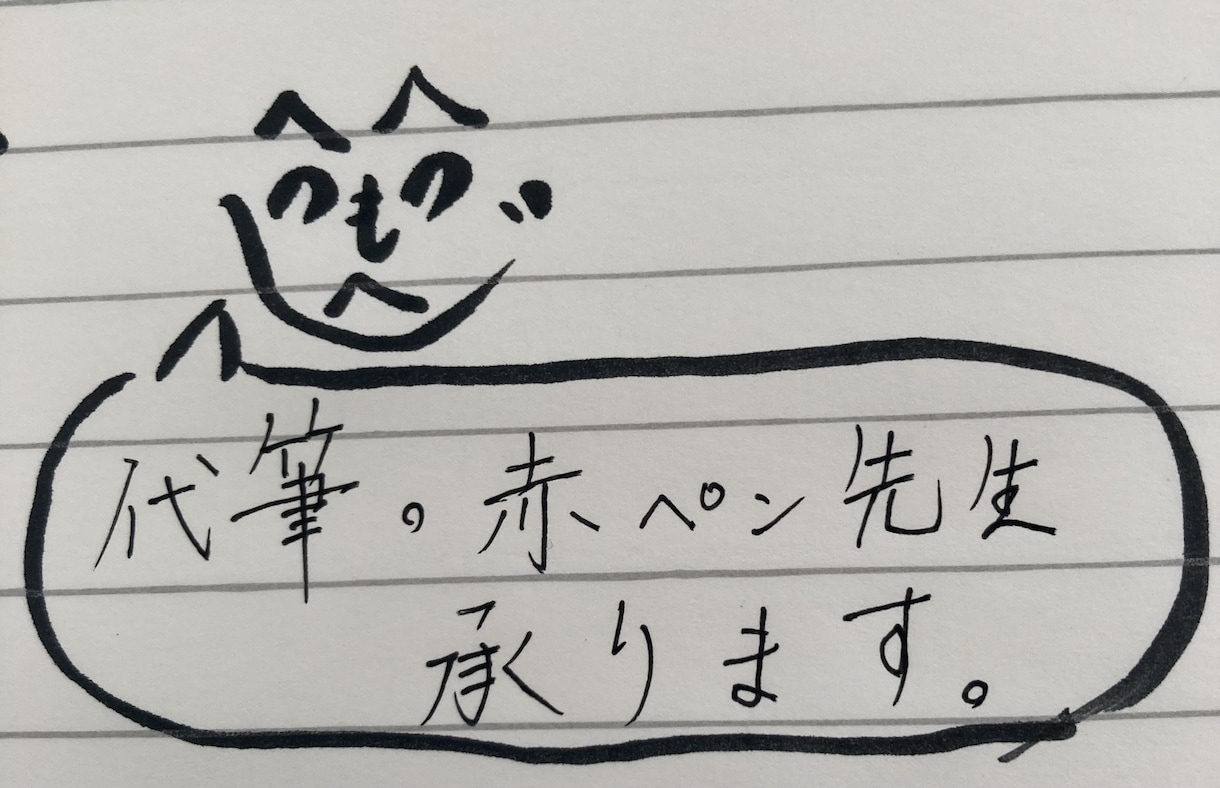 へのへのもへじ
代筆。赤ペン先生
承ります。